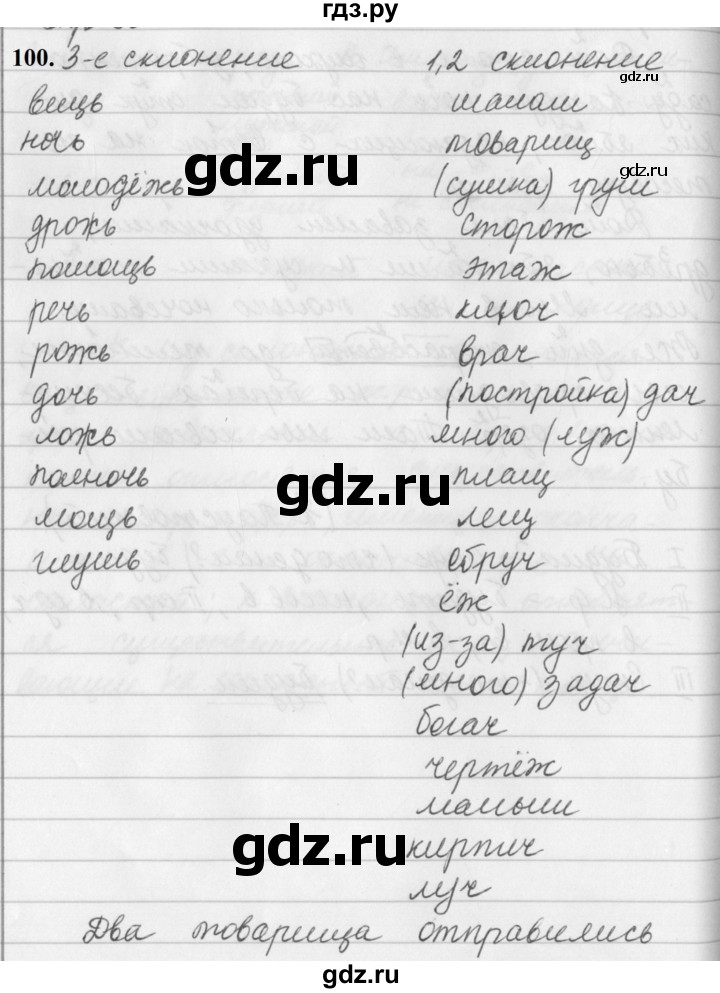 гдз.ру
100. 3-е склонение 1,2 склонение
gdz.ru
вещь шалаш
ночь товарищ
gdz.ru
gdz.ru
молодёжь (сушка) груш
дрожь сторож
помощь этаж
речь ключ
рожь врач
дочь (постройка) дач
ложь много (луж)
полночь плащ
gdz.ru
мощь лещ
глушь обруч
ёж
(из-за) туч
(много) задач
богач
чертёж
малыш
gdz.ru
кирпич
луч
Два товарища отправились
gdz.ru